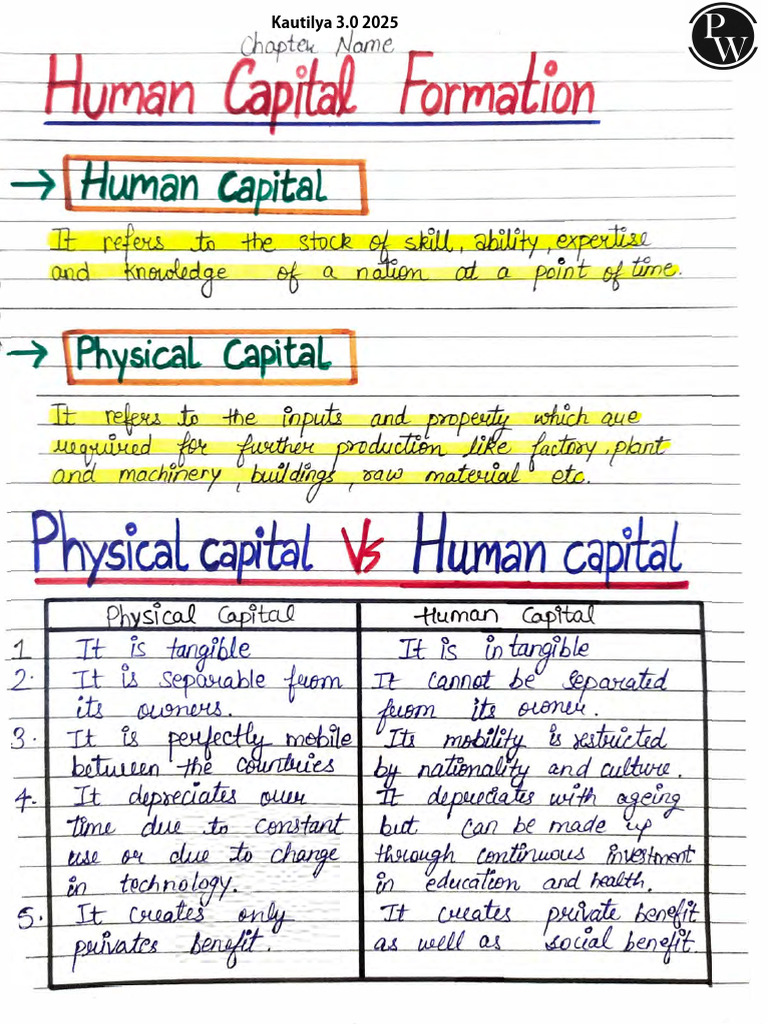 Kautilya 3.0 2025
PW
Chapter Name
Human Capital Formation
→ Human Capital
It refers to the stock of skill, ability, expertise
and knowledge of a nation at a point of time.
→ Physical Capital
It refers to the inputs and property which are
required for further production like factory, plant
and machinery, buildings, raw material etc.
Physical capital Vs Human capital
Physical Capital
Human Capital
1 It is tangible
It is intangible
2. It is separable from
its owners.
It cannot be separated
from its owner.
3. It is perfectly mobile
between the countries
Its mobility is restricted
by nationality and culture.
4. It depreciates over
time due to constant
use or due to change
in technology.
It depreciates with ageing
but can be made up
through continuous investment
in education and health.
5. It creates only
privates benefit.
It creates private benefit
as well as social benefit.